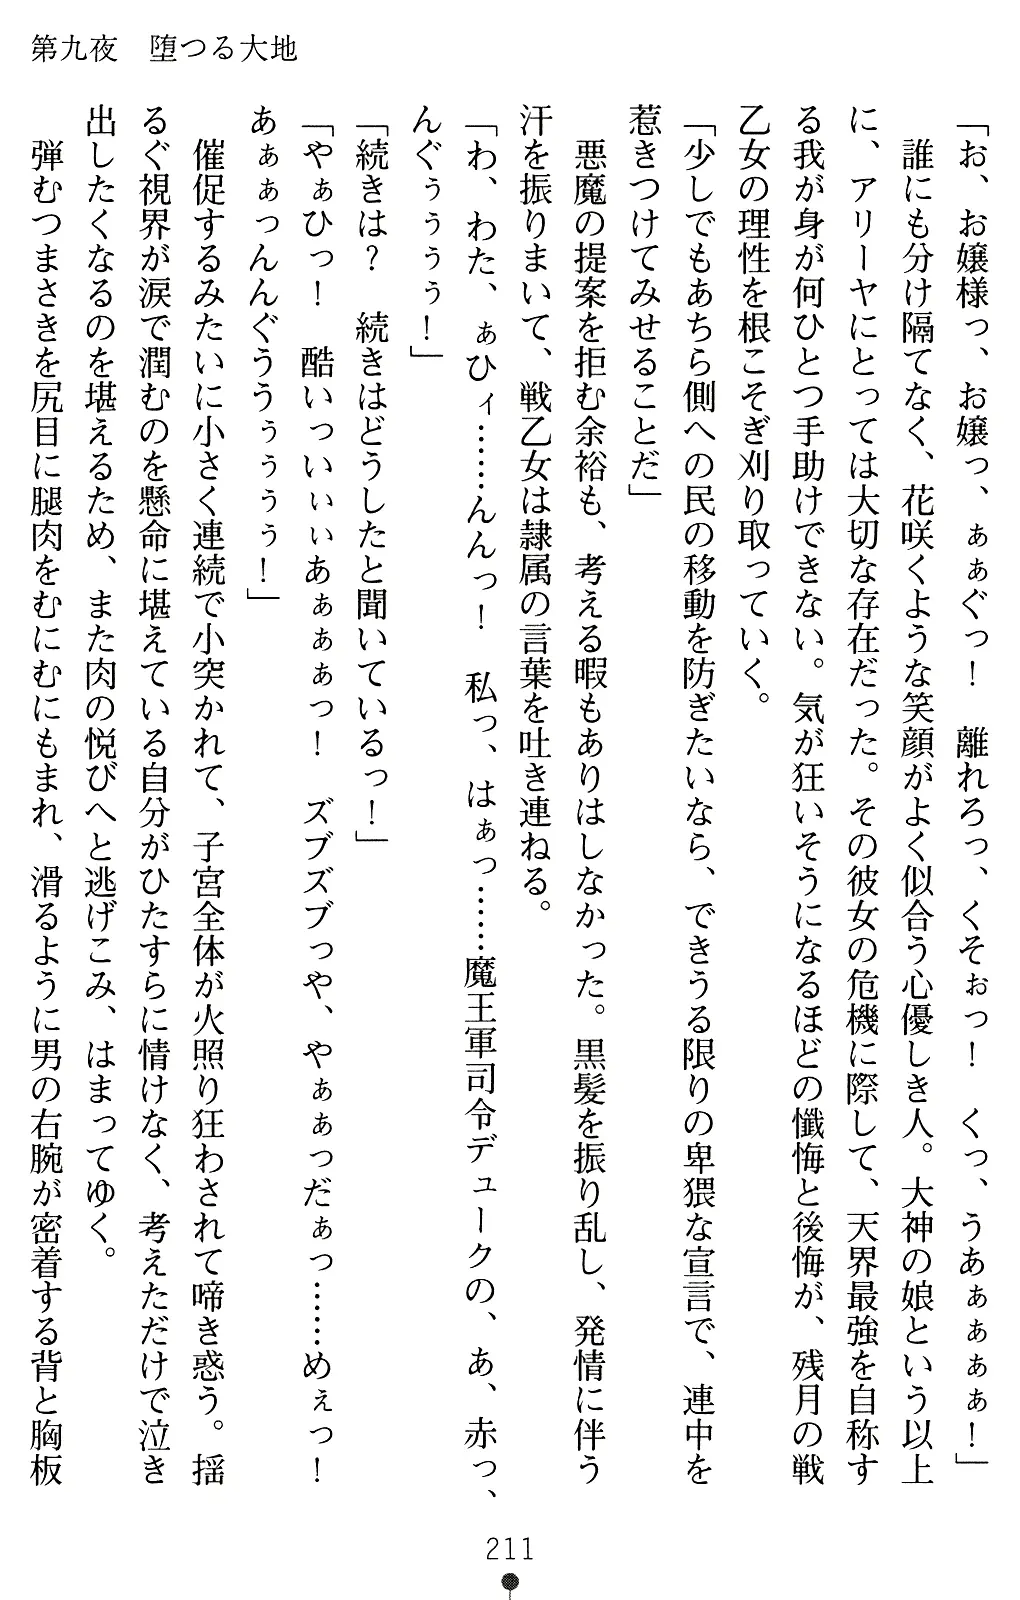 第九夜　堕つる大地
「お、お嬢様っ、お嬢っ、ぁぁぐっ！　離れろっ、くそぉっ！　くっ、うあぁぁぁぁ！」
　誰にも分け隔てなく、花咲くような笑顔がよく似合う心優しき人。大神の娘という以上
に、アリーヤにとっては大切な存在だった。その彼女の危機に際して、天界最強を自称す
る我が身が何ひとつ手助けできない。気が狂いそうになるほどの懺悔と後悔が、残月の戦
乙女の理性を根こそぎ刈り取っていく。
「少しでもあちら側への民の移動を防ぎたいなら、できうる限りの卑猥な宣言で、連中を
惹きつけてみせることだ」
　悪魔の提案を拒む余裕も、考える暇もありはしなかった。黒髪を振り乱し、発情に伴う
汗を振りまいて、戦乙女は隷属の言葉を吐き連ねる。
「わ、わた、ぁひィ……んんっ！　私っ、はぁっ……魔王軍司令デュークの、あ、赤っ、
んぐぅぅぅぅ！」
「続きは？　続きはどうしたと聞いているっ！」
「やぁひっ！　酷いっいぃぃあぁぁぁっ！　ズブズブっや、やぁぁっだぁっ……めぇっ！
あぁぁっんんぐううぅぅぅぅ！」
　催促するみたいに小さく連続で小突かれて、子宮全体が火照り狂わされて啼き惑う。揺
るぐ視界が涙で潤むのを懸命に堪えている自分がひたすらに情けなく、考えただけで泣き
出したくなるのを堪えるため、また肉の悦びへと逃げこみ、はまってゆく。
　弾むつまさきを尻目に腿肉をむにむにもまれ、滑るように男の右腕が密着する背と胸板
211